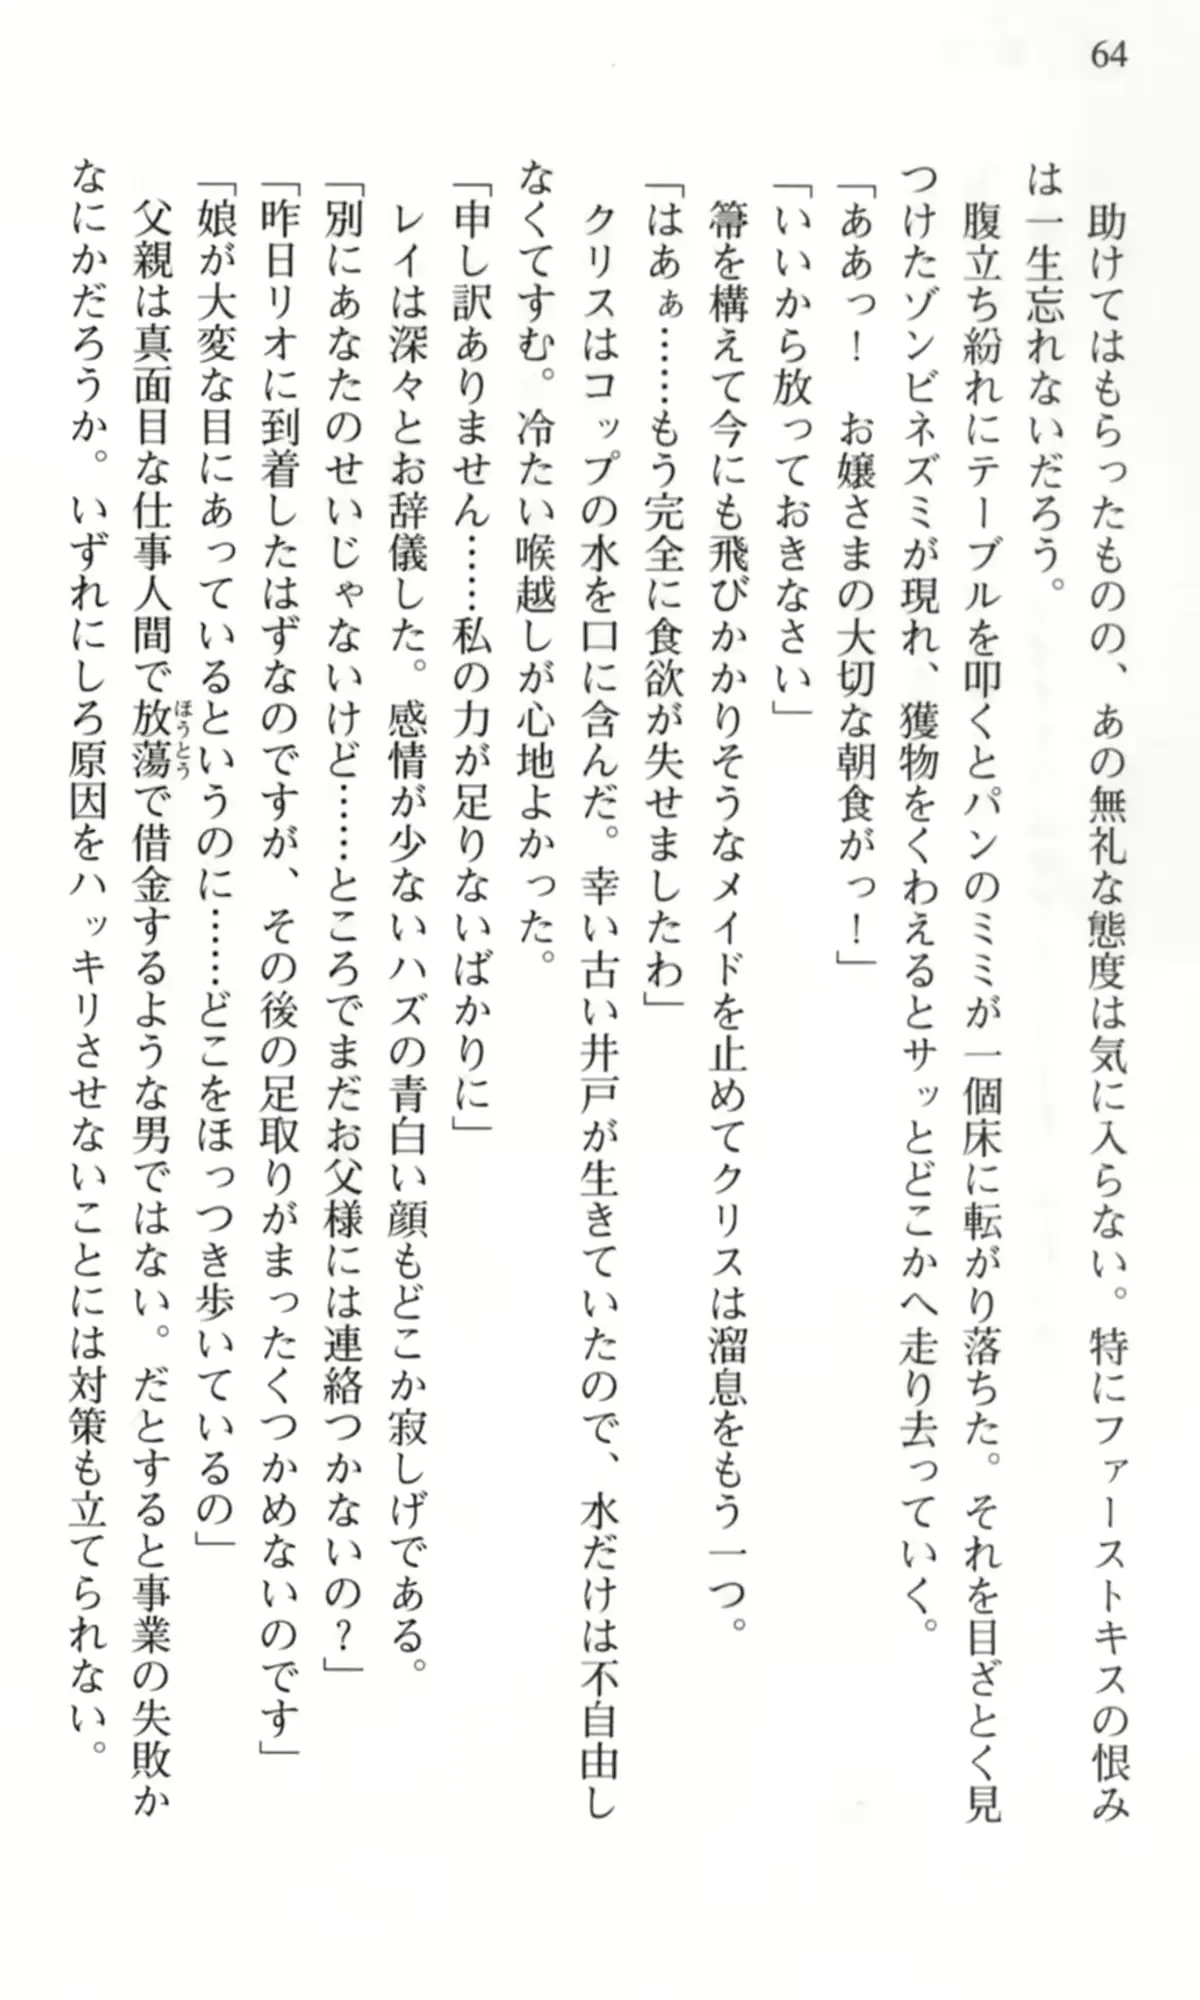 64
　助けてはもらったものの、あの無礼な態度は気に入らない。特にファーストキスの恨み
は一生忘れないだろう。
　腹立ち紛れにテーブルを叩くとパンのミミが一個床に転がり落ちた。それを目ざとく見
つけたゾンビネズミが現れ、獲物をくわえるとサッとどこかへ走り去っていく。
「ああっ！　お嬢さまの大切な朝食がっ！」
「いいから放っておきなさい」
　箒を構えて今にも飛びかかりそうなメイドを止めてクリスは溜息をもう一つ。
「はあぁ……もう完全に食欲が失せましたわ」
　クリスはコップの水を口に含んだ。幸い古い井戸が生きていたので、水だけは不自由し
なくてすむ。冷たい喉越しが心地よかった。
「申し訳ありません……私の力が足りないばかりに」
　レイは深々とお辞儀した。感情が少ないハズの青白い顔もどこか寂しげである。
「別にあなたのせいじゃないけど……ところでまだお父様には連絡つかないの？」
「昨日リオに到着したはずなのですが、その後の足取りがまったくつかめないのです」
「娘が大変な目にあっているというのに……どこをほっつき歩いているの」
　父親は真面目な仕事人間で放蕩ほうとうで借金するような男ではない。だとすると事業の失敗か
なにかだろうか。いずれにしろ原因をハッキリさせないことには対策も立てられない。